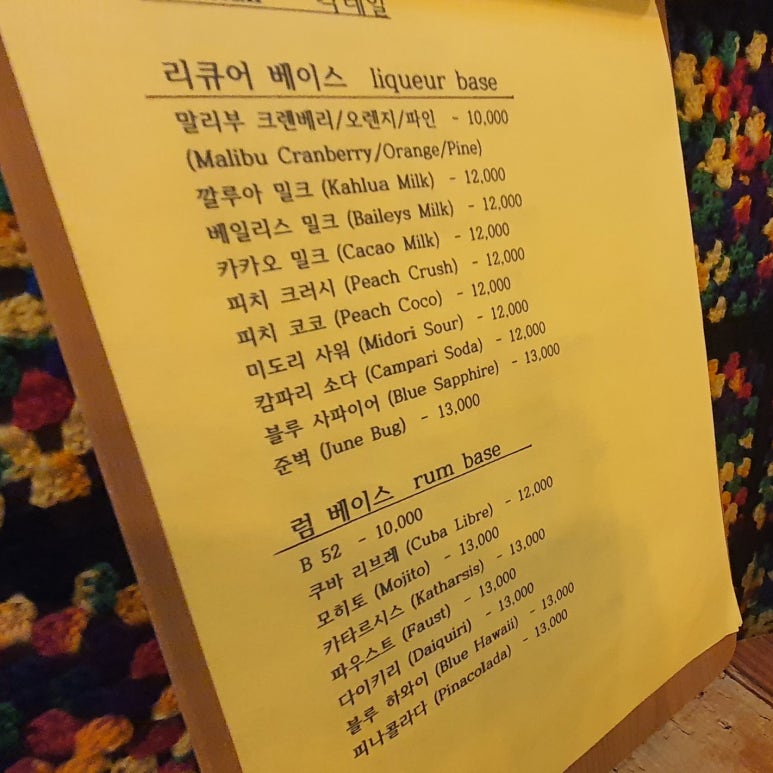 칵테일
리큐어 베이스 liqueur base
말리부 크렌베리/오렌지/파인 - 10,000
(Malibu Cranberry/Orange/Pine)
깔루아 밀크 (Kahlua Milk) - 12,000
베일리스 밀크 (Baileys Milk) - 12,000
카카오 밀크 (Cacao Milk) - 12,000
피치 크러시 (Peach Crush) - 12,000
피치 코코 (Peach Coco) - 12,000
미도리 사워 (Midori Sour) - 12,000
캄파리 소다 (Campari Soda) - 12,000
블루 사파이어 (Blue Sapphire) - 13,000
준벅 (June Bug) - 13,000
럼 베이스 rum base
B 52 - 10,000
쿠바 리브레 (Cuba Libre) - 12,000
모히토 (Mojito) - 13,000
카타르시스 (Katharsis) - 13,000
파우스트 (Faust) - 13,000
다이키리 (Daiquiri) - 13,000
블루 하와이 (Blue Hawaii) - 13,000
피나콜라다 (Pinacolada) - 13,000